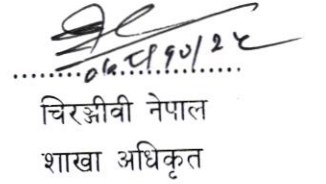 चिरञ्जीवी नेपाल
शाखा अधिकृत